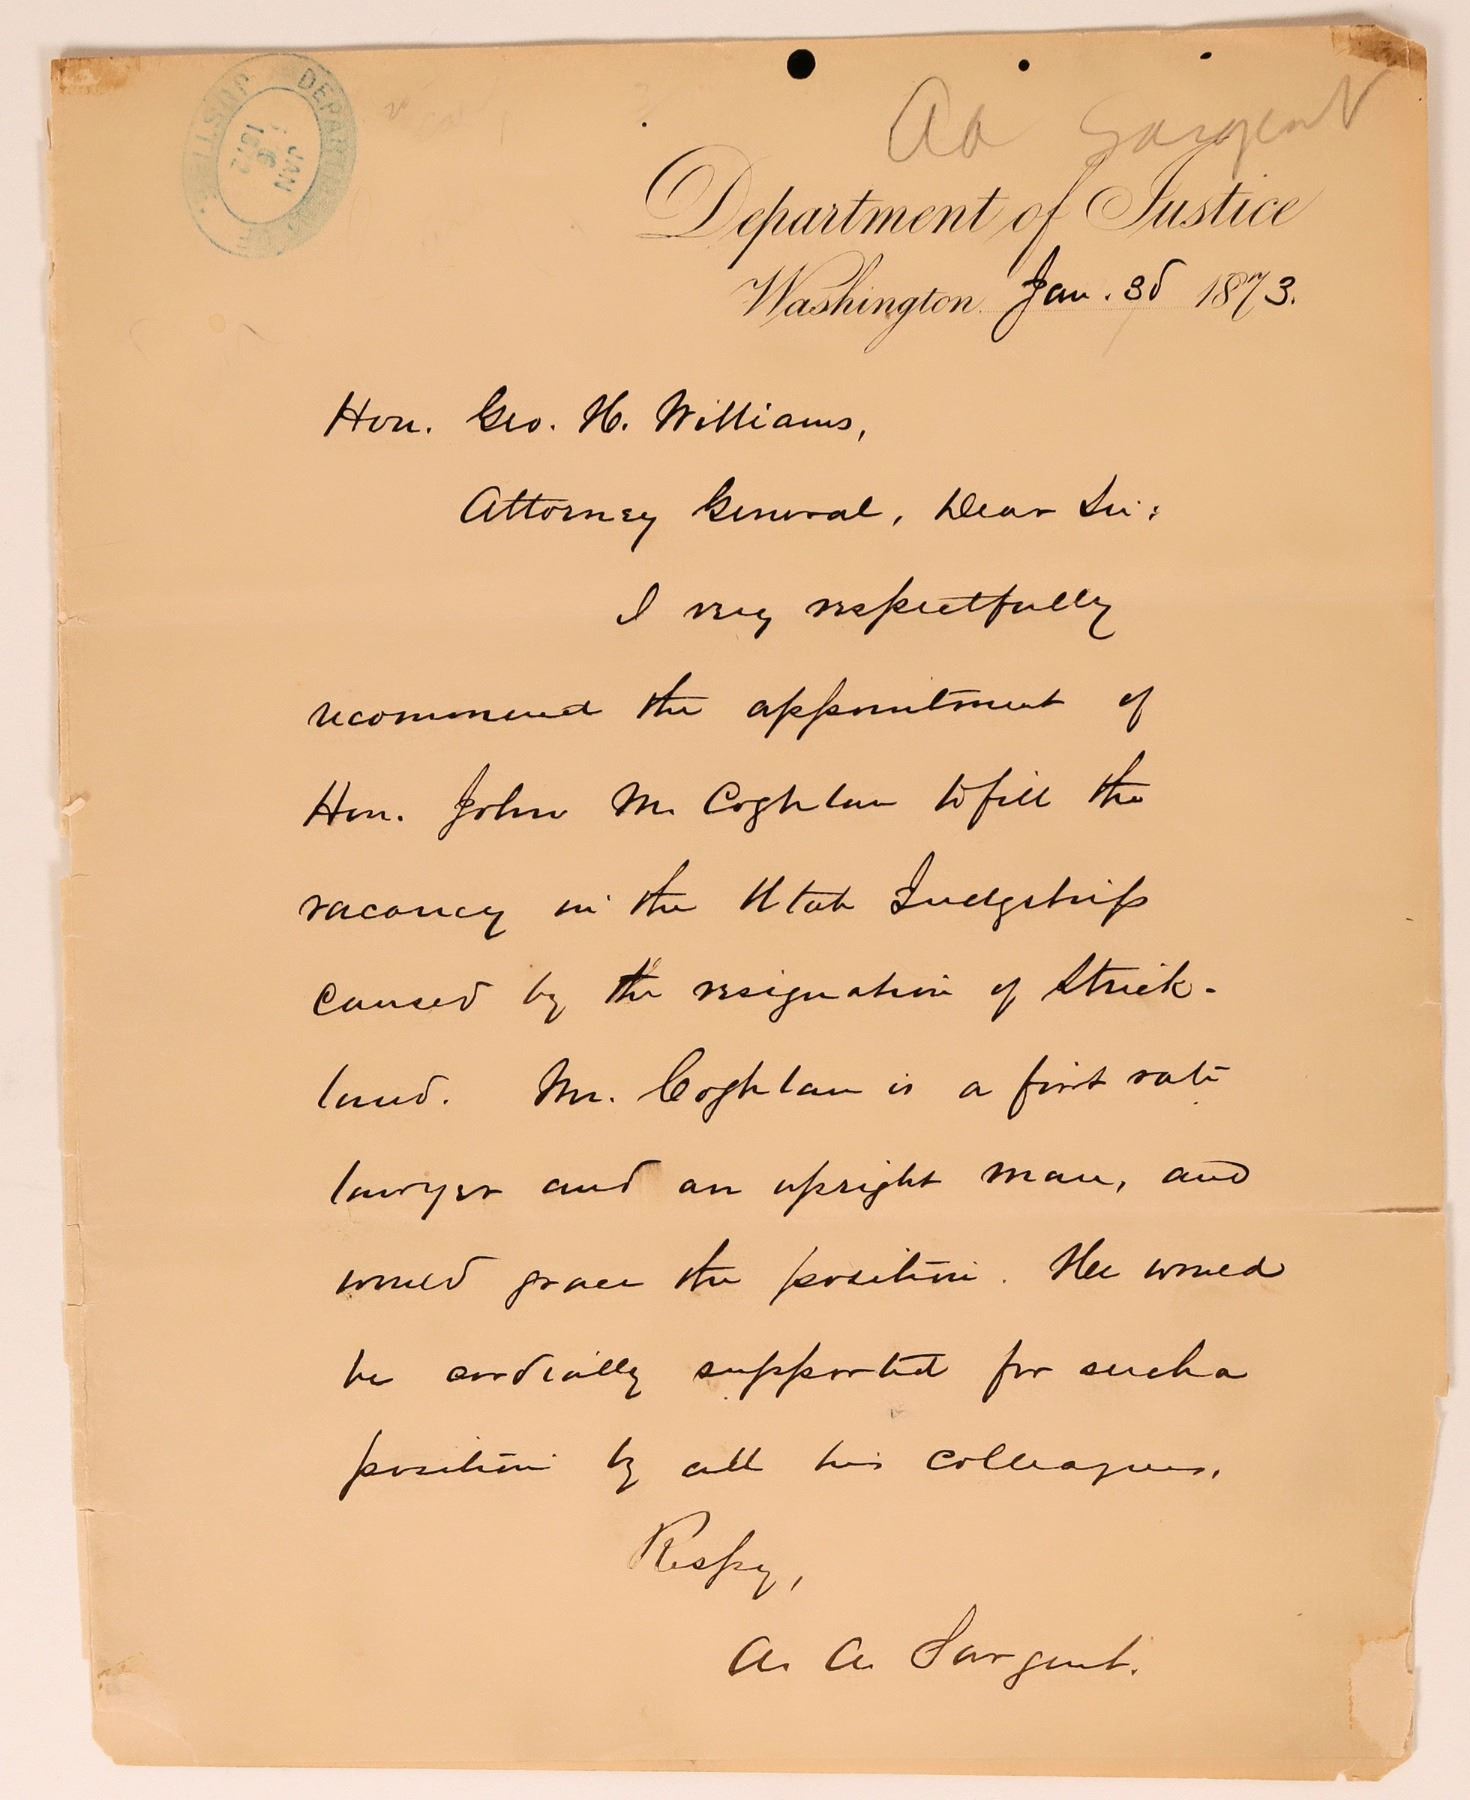 AA Sargent
DEPARTMENT OF JUSTICE
JAN
Department of Justice
Washington Jan. 3d 1873.
Hon. Geo. H. Williams,
Attorney General, Dear Sir:
I very respectfully
recommend the appointment of
Hon. John M. Coghlan to fill the
vacancy in the Utah Judgeship
caused by the resignation of Strick-
land. Mr. Coghlan is a first rate
lawyer and an upright man, and
would grace the position. He would
be cordially supported for such a
position by all his colleagues.
Respy,
A. A. Sargent.